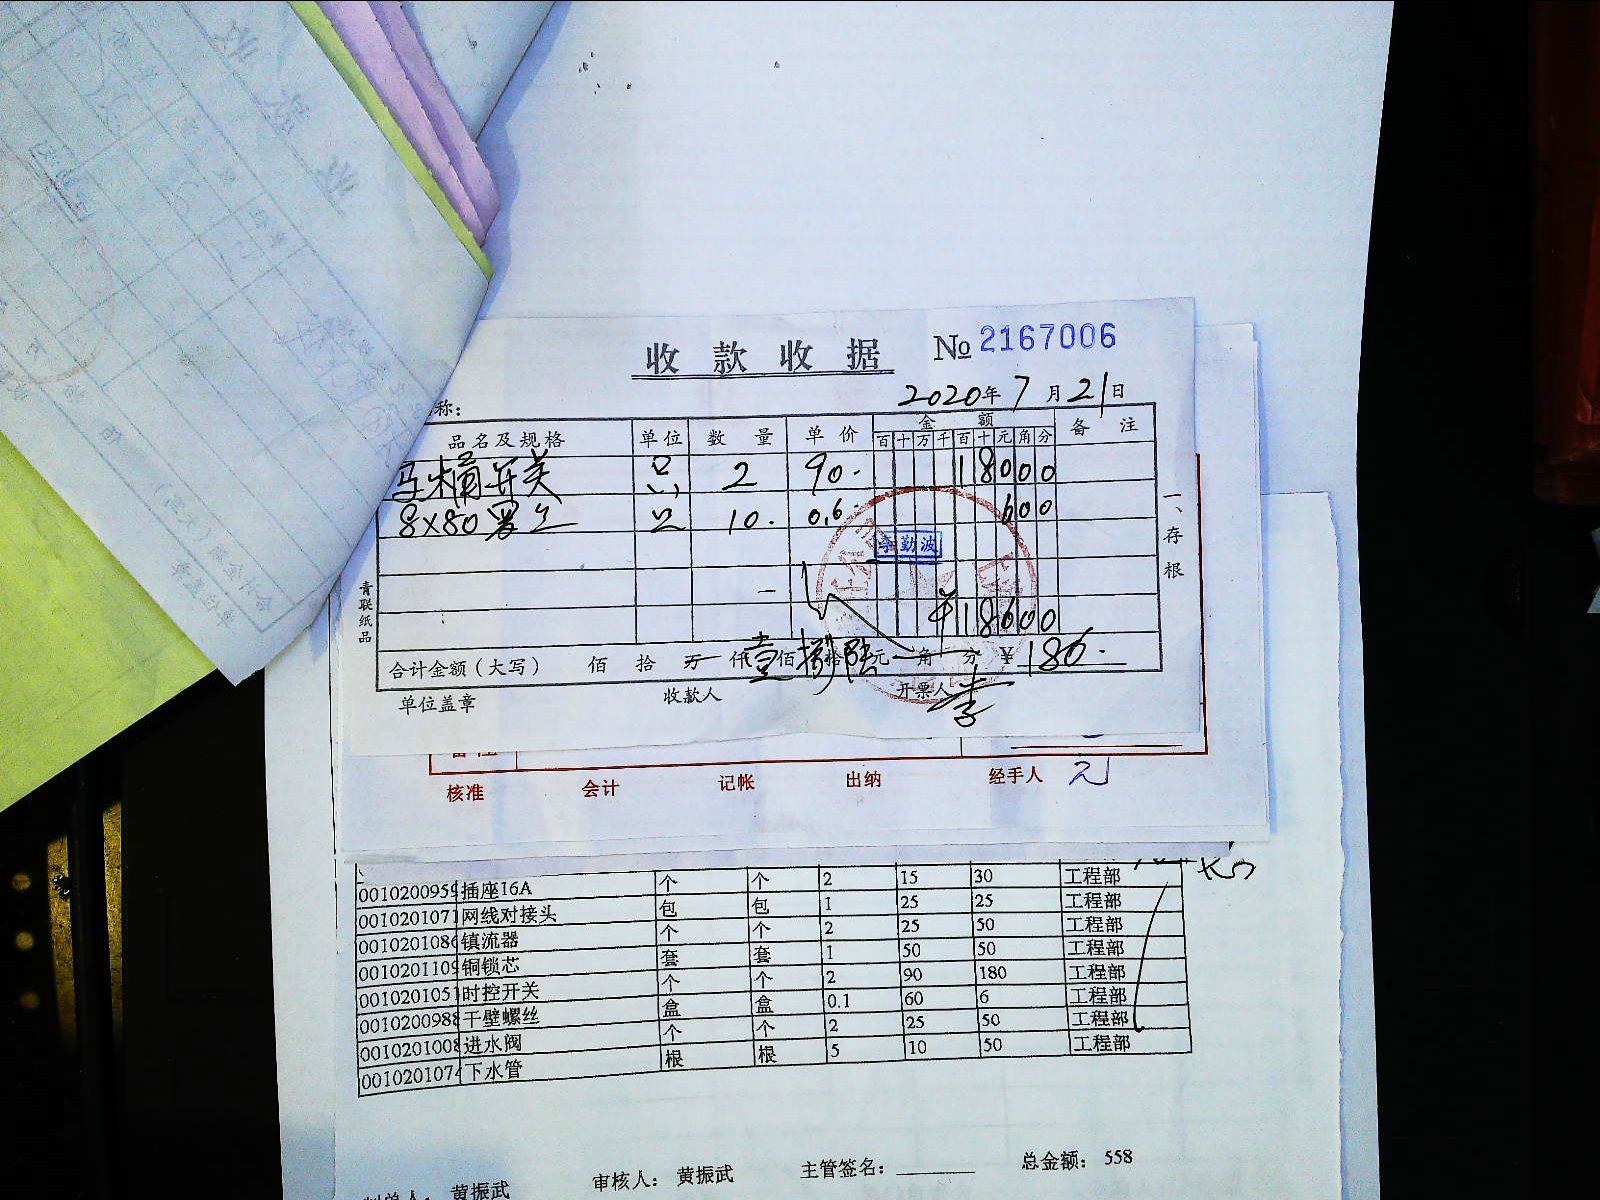 收款收据 № 2167006
2020年7月21日
称：
品名及规格 单位 数量 单价 金额 备注
百十万千百十元角分
开关 只 2 90.- 18000
8×80 只 10. 0.6 600
李勤波
¥18600
合计金额（大写） 佰 拾 万 仟壹佰捌拾陆元 角 分 ¥186.
单位盖章 收款人 开票人 李
青联纸品
一、存根
核准 会计 记帐 出纳 经手人
0010200959 插座16A 个 个 2 15 30 工程部
0010201071 网线对接头 包 包 1 25 25 工程部
0010201086 镇流器 个 个 2 25 50 工程部
0010201109 铜锁芯 套 套 1 50 50 工程部
0010201051 时控开关 个 个 2 90 180 工程部
0010200988 干壁螺丝 盒 盒 0.1 60 6 工程部
0010201008 进水阀 个 个 2 25 50 工程部
0010201074 下水管 根 根 5 10 50 工程部
制单人： 黄振武 审核人： 黄振武 主管签名： 总金额： 558